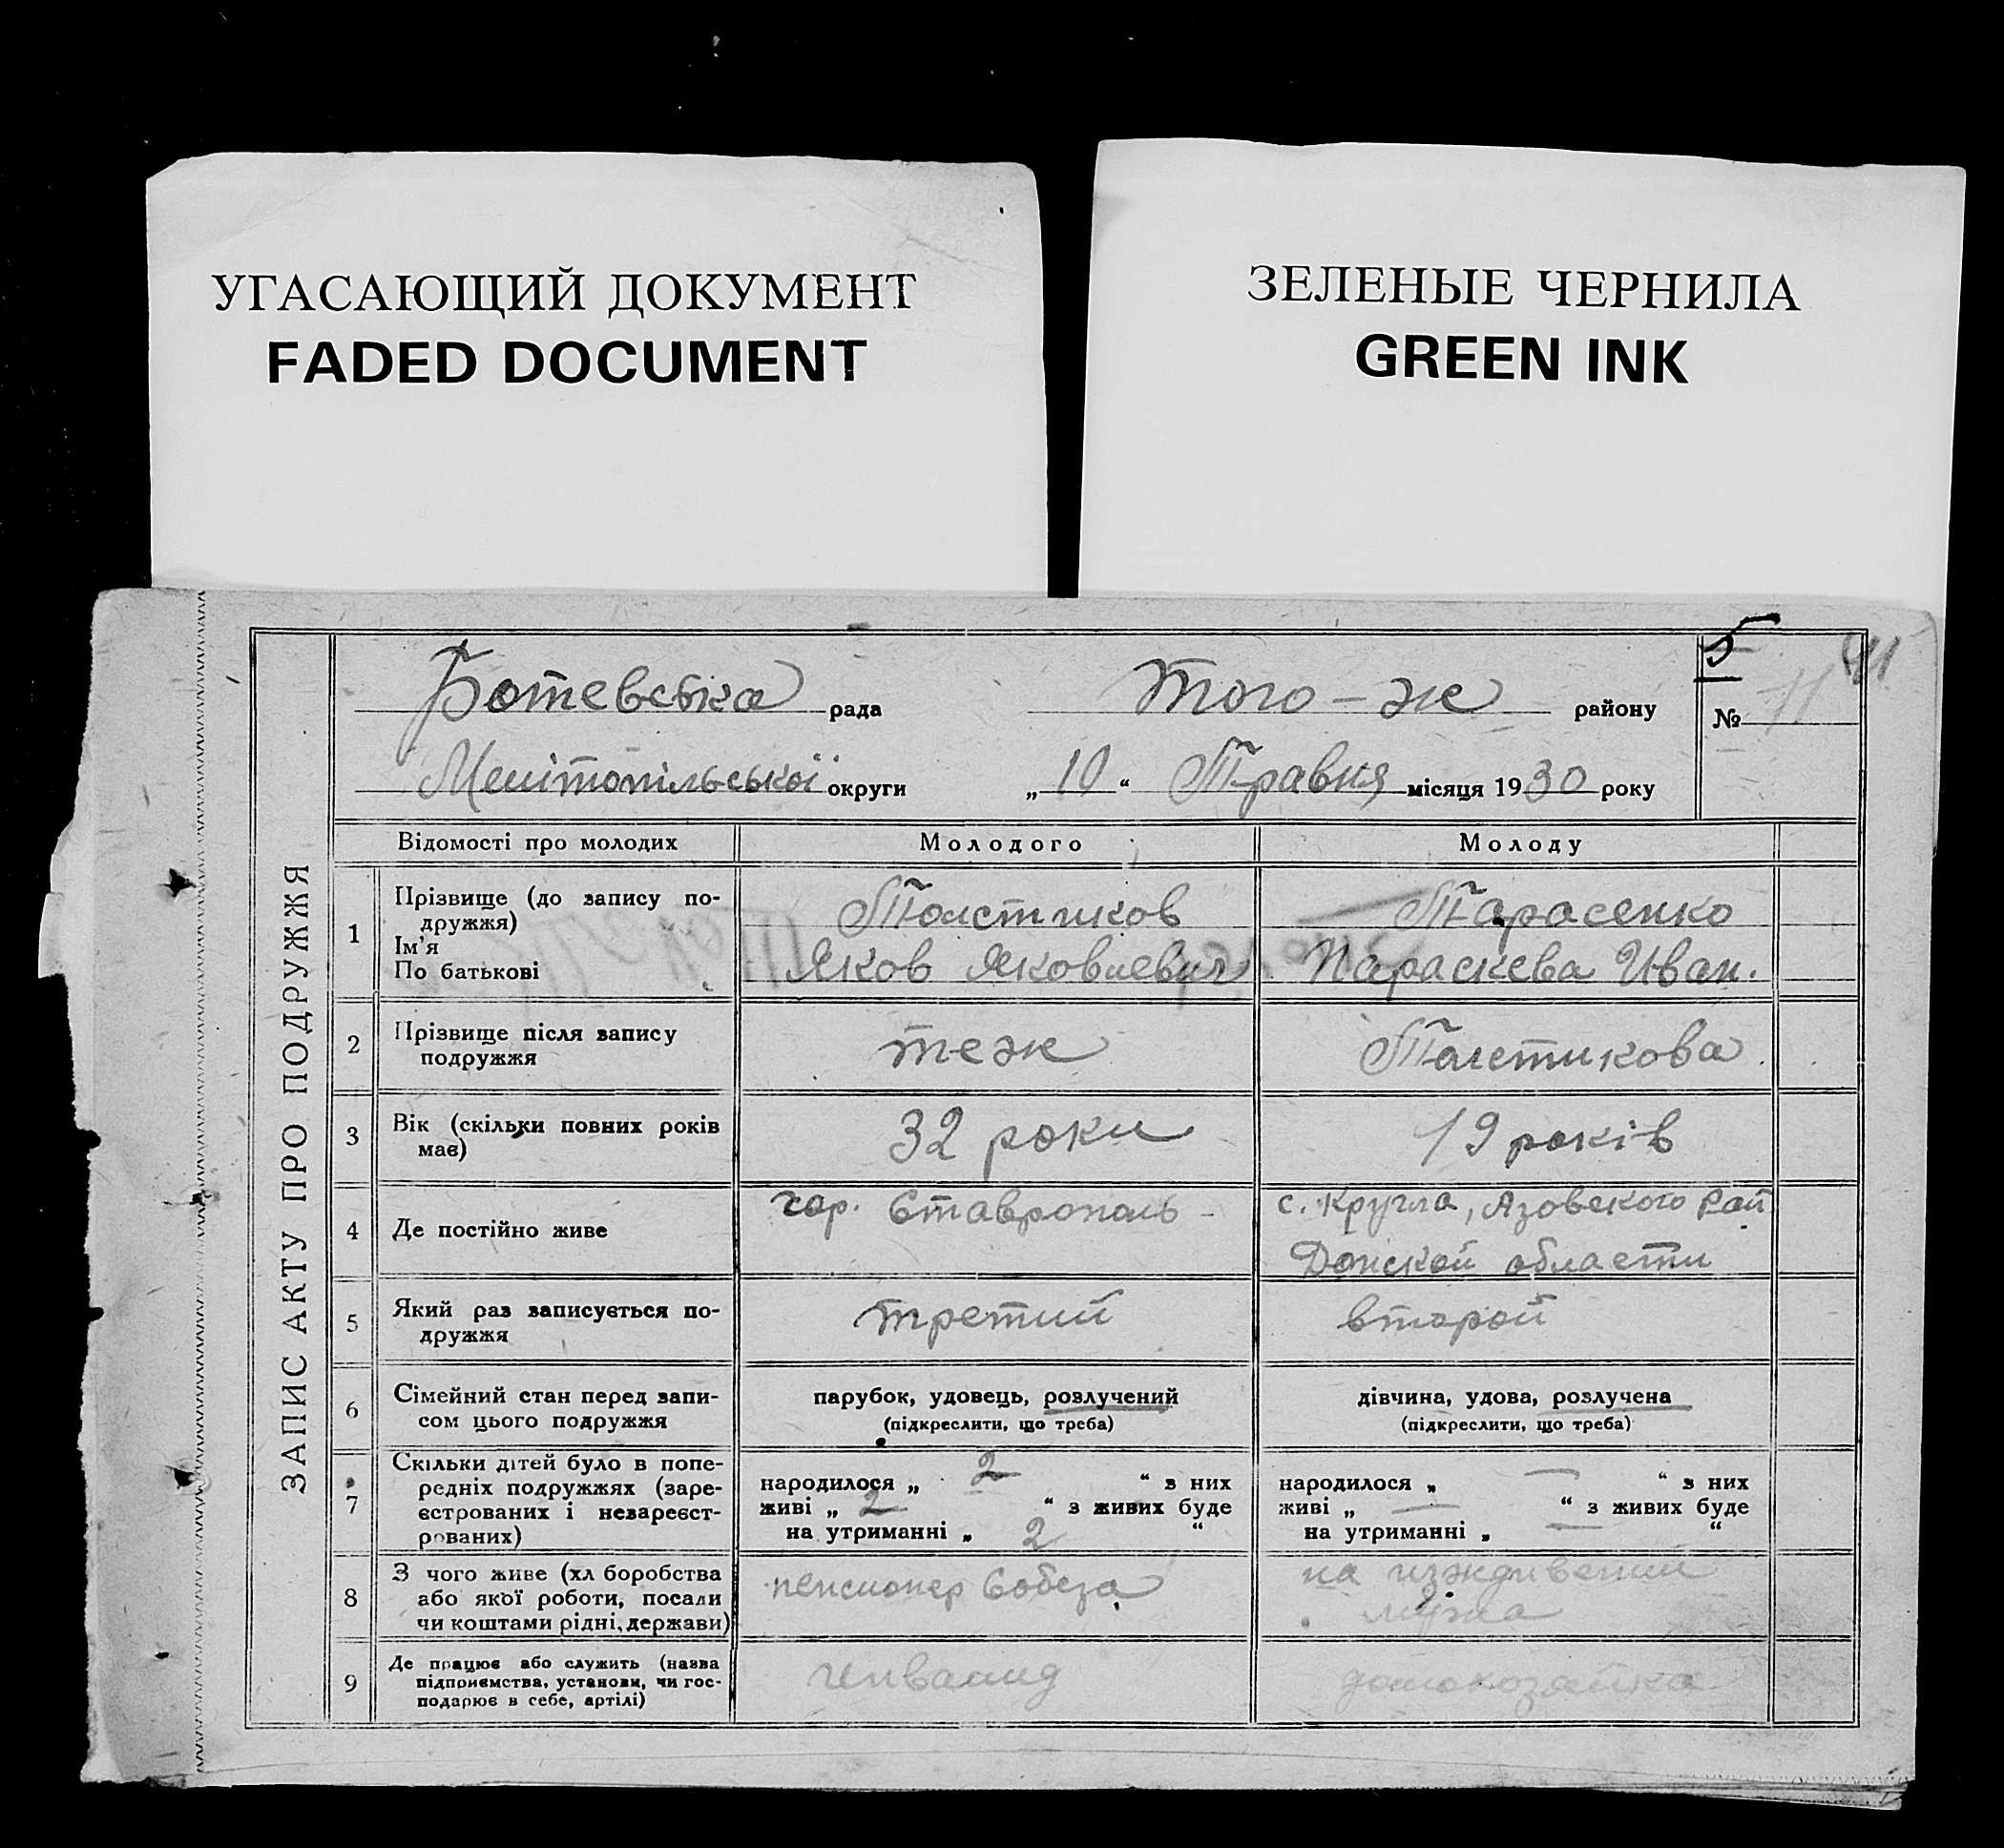 УГАСАЮЩИЙ ДОКУМЕНТ
FADED DOCUMENT
ЗЕЛЕНЫЕ ЧЕРНИЛА
GREEN INK
ЗАПИС АКТУ ПРО ПОДРУЖЖЯ
5
41
Ботевська рада Того-ж району
№ 11
Мелітопільської округи „10“ Травня місяця 1930 року
Відомості про молодих Молодого Молоду
1 Прізвище (до запису по-
дружжя) Толстиков Тарасенко
Ім'я
По батькові Яков Яковлевич Параскева Иван.
2 Прізвище після запису
подружжя теж Толстикова
3 Вік (скільки повних років
має) 32 роки 19 років
4 Де постійно живе гор. Ставрополь - с. Кругла, Азовского Рай
Донской области
5 Який раз записується по-
дружжя третий второй
6 Сімейний стан перед запи-
сом цього подружжя
парубок, удовець, розлучений
(підкреслити, що треба)
дівчина, удова, розлучена
(підкреслити, що треба)
7 Скільки дітей було в попе-
редніх подружжях (заре-
єстрованих і незареєст-
рованих)
народилося „ 2 “ з них
живі „ 2 “ з живих буде
на утриманні „ 2 “
народилося „ — “ з них
живі „ — “ з живих буде
на утриманні „ — “
8 З чого живе (хл боробства
або якої роботи, посади
чи коштами рідні, держави)
пенсионер Собеза
на иждивении
мужа
9 Де працює або служить (назва
підприємства, установи, чи гос-
подарює в себе, артілі)
инвалид
домохозяйка